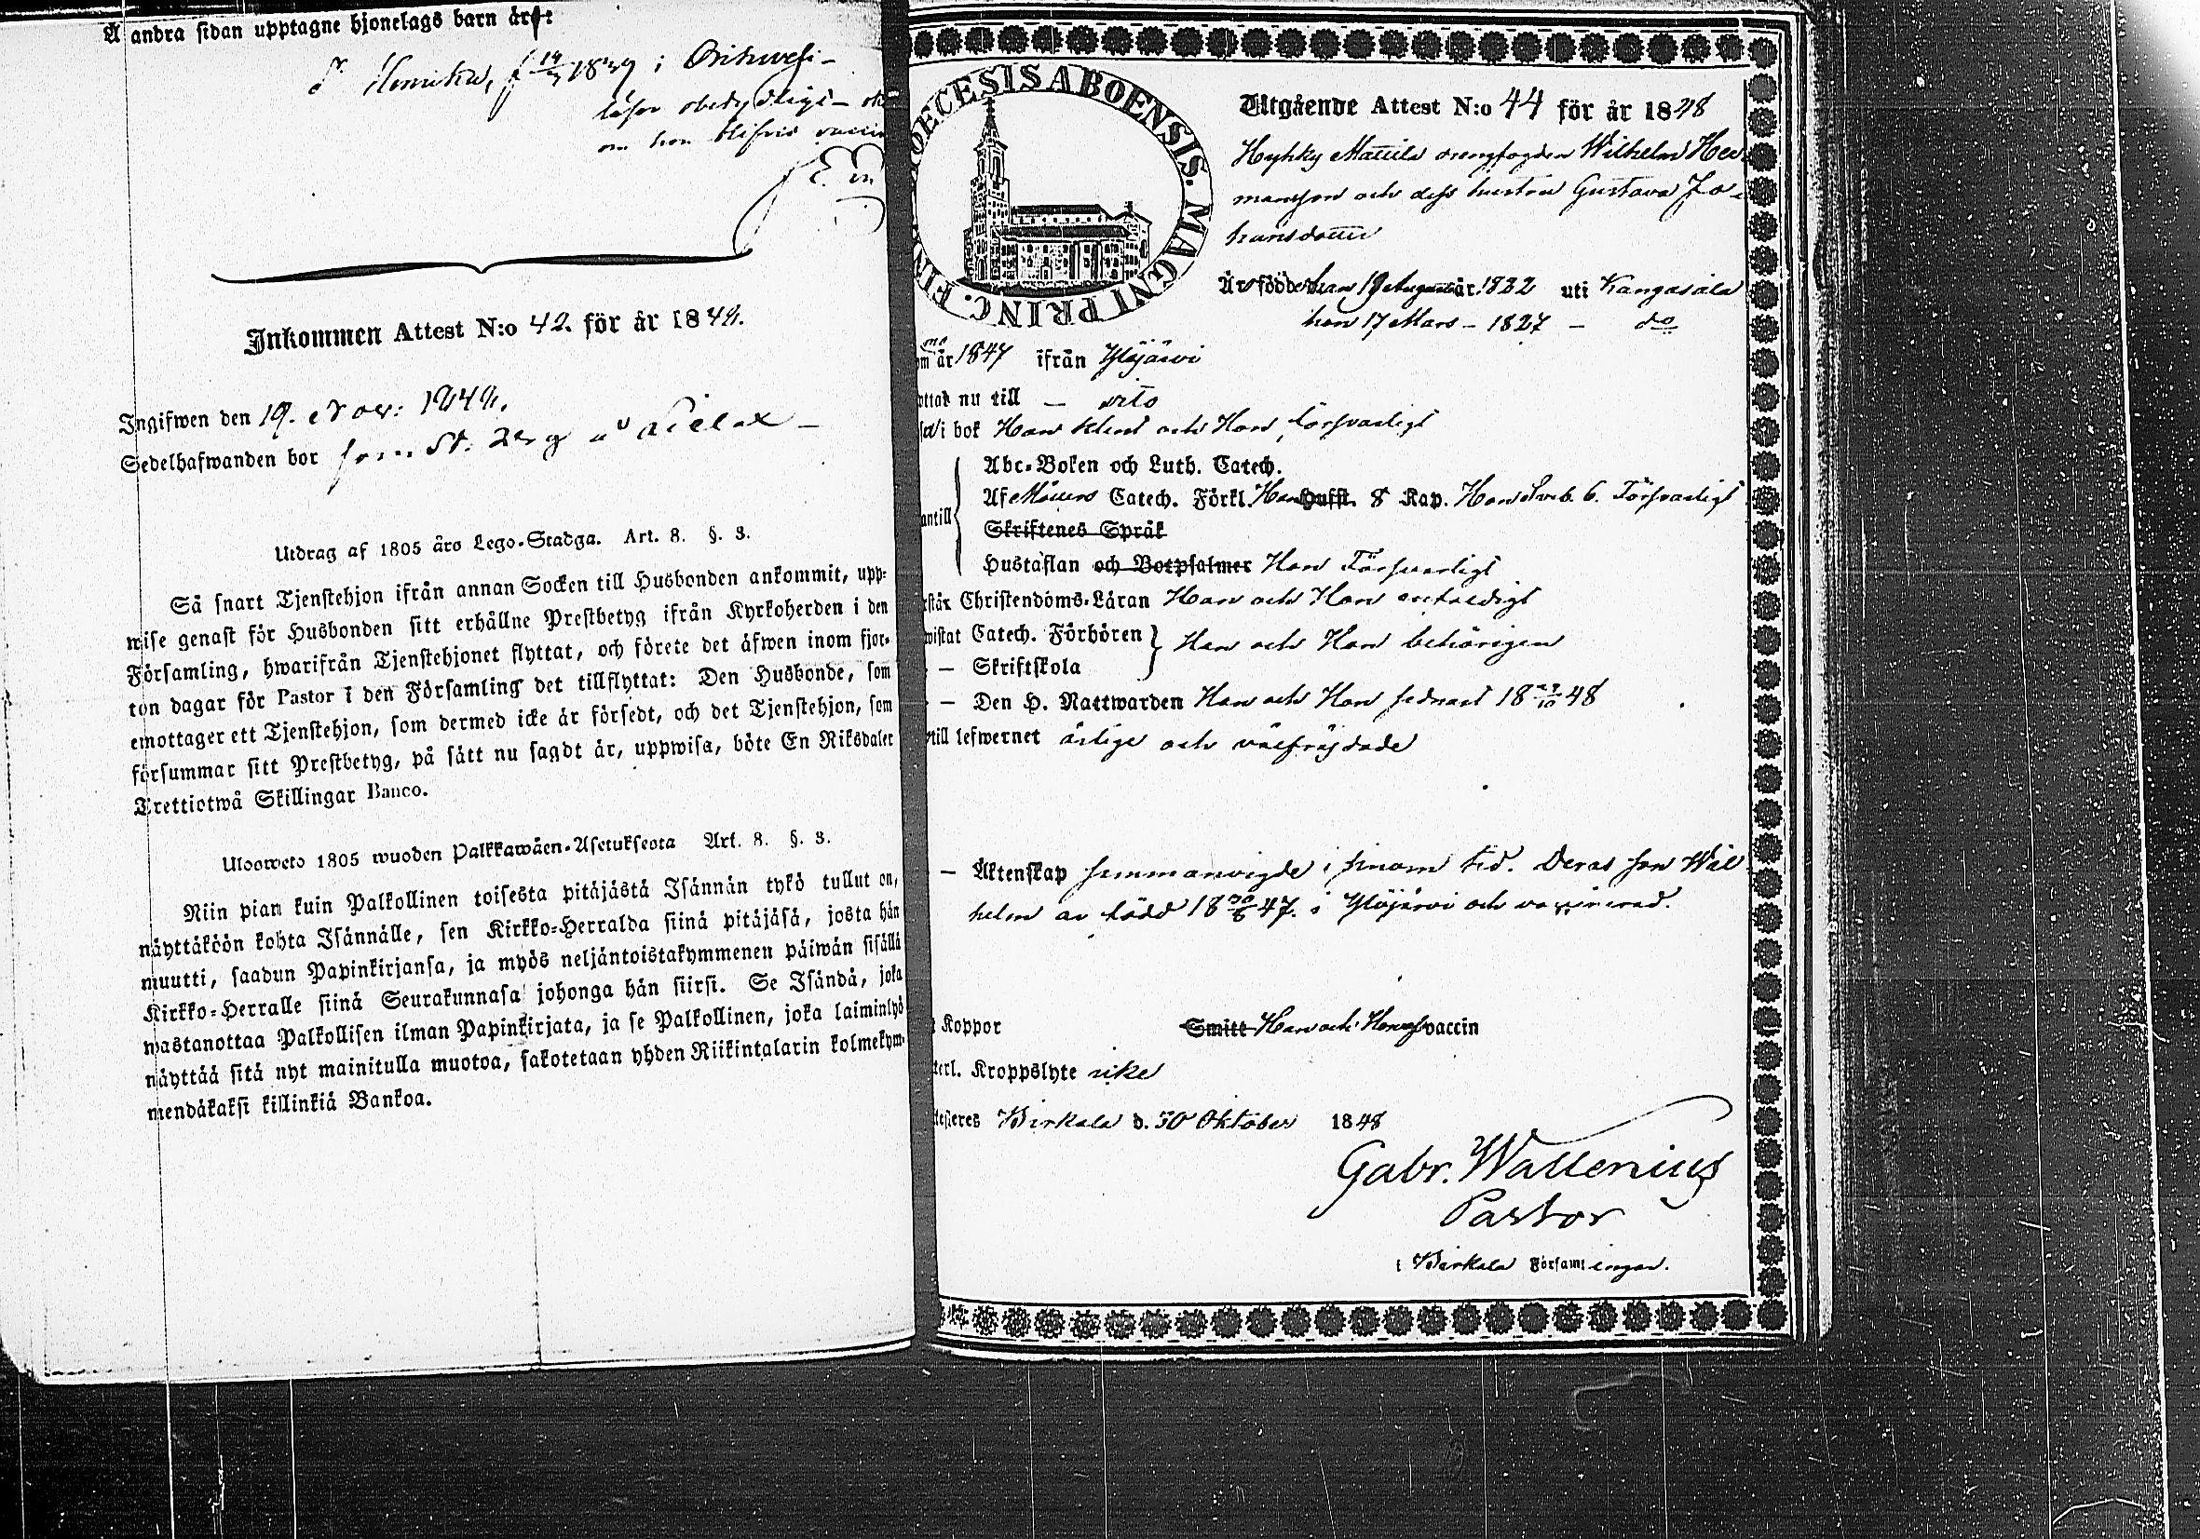 Å andra sidan upptagne hjonelags barn är:
D. Henrika, f 14/7 1839 i Orihvesi
Inkommen Attest N:o 42. för år 1848.
Ingifwen den 19. Nov: 1848.
Sedelhafwanden bor som
Utdrag af 1805 års Lego-Stadga. Art. 8. §. 3.
Så snart Tjenstehjon ifrån annan Socken till Husbonden ankommit, upp-
wise genast för Husbonden sitt erhållne Prestbetyg ifrån Kyrkoherden i den
Församling, hwarifrån Tjenstehjonet flyttat, och förete det äfwen inom fjor-
ton dagar för Pastor i den Församling det tillflyttat: Den Husbonde, som
emottager ett Tjenstehjon, som dermed icke är försedt, och det Tjenstehjon, som
försummar sitt Prestbetyg, på sätt nu sagdt är, uppwisa, böte En Riksdaler
Trettiotwå Skillingar Banco.
Ulosweto 1805 wuoden Palkkawäen-Asetuksesta Art. 8. §. 3.
Niin pian kuin Palkollinen toisesta pitäjästä Isännän tykö tullut on,
näyttäköön kohta Isännälle, sen Kirkko-Herralda siinä pitäjäsä, josta hän
muutti, saadun Papinkirjansa, ja myös neljäntoistakymmenen päiwän sisällä
Kirkko-Herralle siinä Seurakunnasa johonga hän siirsi. Se Isändä, joka
wastanottaa Palkollisen ilman Papinkirjata, ja se Palkollinen, joka laiminlyö
näyttää sitä nyt mainitulla muotoa, sakotetaan yhden Riikintalarin kolmekym-
mendäkaksi killinkiä Bankoa.
DIOECESIS ABOENSIS. MAGNI PRINC. FIN
Utgående Attest N:o 44 för år 1848
Hyhky Mattila drengfogden Wilhelm Her-
mansson och dess hustru Gustava Jo-
hansdotter
Äro födde han 19 Augusti år 1822 uti Kangasala
hon 17 Mars – 1827 – do
år 1847 ifrån Ylöjärvi
nu till – dito
i bok Han klent och Hon försvarligt
Abc-Boken och Luth. Catech.
Af Möllers Catech. Förkl. Han Hufst. 8 Kap. Hon Sveb. 6. Försvarligt
Skriftenes Språk
Hustaflan och Botpsalmer Hon Försvarligt
Christendoms-Läran Han och Hon enfaldigt
wistat Catech. Förhören } Han och Hon behörigen
– Skriftskola
– Den H. Nattwarden Han och Hon sednast 18 /10 48
till lefwernet ärlige och välfrejdade
– Äktenskap sammanvigde i sinom tid. Deras son Wil-
helm är född 18 30/6 47. i Ylöjärvi och vaccinerad.
Koppor Smitt Han och Hon vaccin
Kroppslyte icke
Birkala d. 30 Oktober 1848
Gabr. Wallenius
Pastor
i Birkala Församlingar.